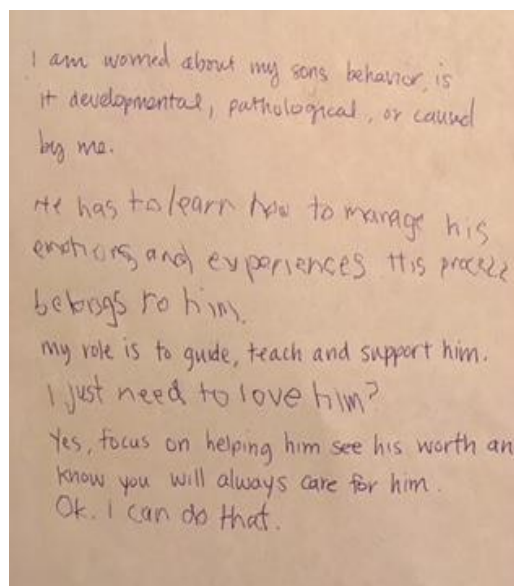 I am worried about my sons behavior, is
it developmental, pathological, or caused
by me.
He has to learn how to manage his
emotions and experiences. His process
belongs to him.
my role is to guide, teach and support him.
I just need to love him?
Yes, focus on helping him see his worth an
know you will always care for him.
Ok. I can do that.